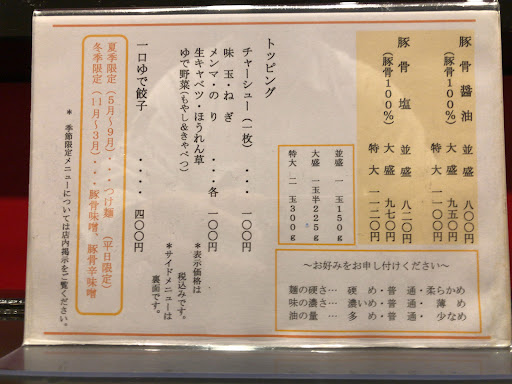 豚骨醤油　並盛　八〇〇円
（豚骨100%）　大盛　九五〇円
特大　一一〇〇円
豚骨塩　並盛　八二〇円
（豚骨100%）　大盛　九七〇円
特大　一一二〇円
並盛　一玉150g
大盛　一玉半225g
特大　二玉300g
〜お好みをお申し付けください〜
麺の硬さ…　硬め・普通・柔らかめ
味の濃さ…　濃いめ・普通・薄め
油の量…　多め・普通・少なめ
トッピング
チャーシュー（一枚）・・・一〇〇円
味玉・ねぎ
メンマ・のり・・・各一〇〇円
生キャベツ・ほうれん草
ゆで野菜（もやし&きゃべつ）
＊表示価格は
税込みです。
＊サイドメニューは
裏面です。
一口ゆで餃子・・・・四〇〇円
夏季限定（５月〜９月）・・・つけ麺（平日限定）
冬季限定（１１月〜３月）・・・豚骨味噌、豚骨辛味噌
＊季節限定メニューについては店内掲示をご覧ください。